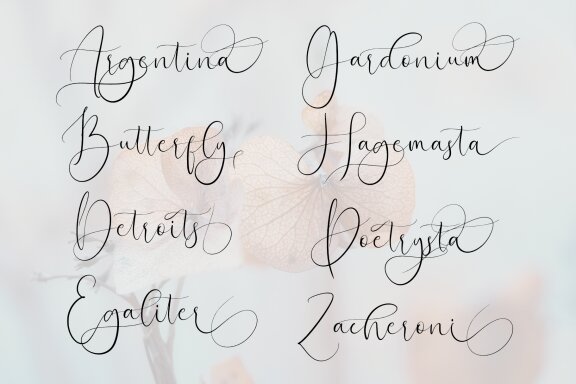 Argentina
Butterfly
Detroits
Egaliter
Gardonium
Hagemasta
Poetrysta
Zacheroni